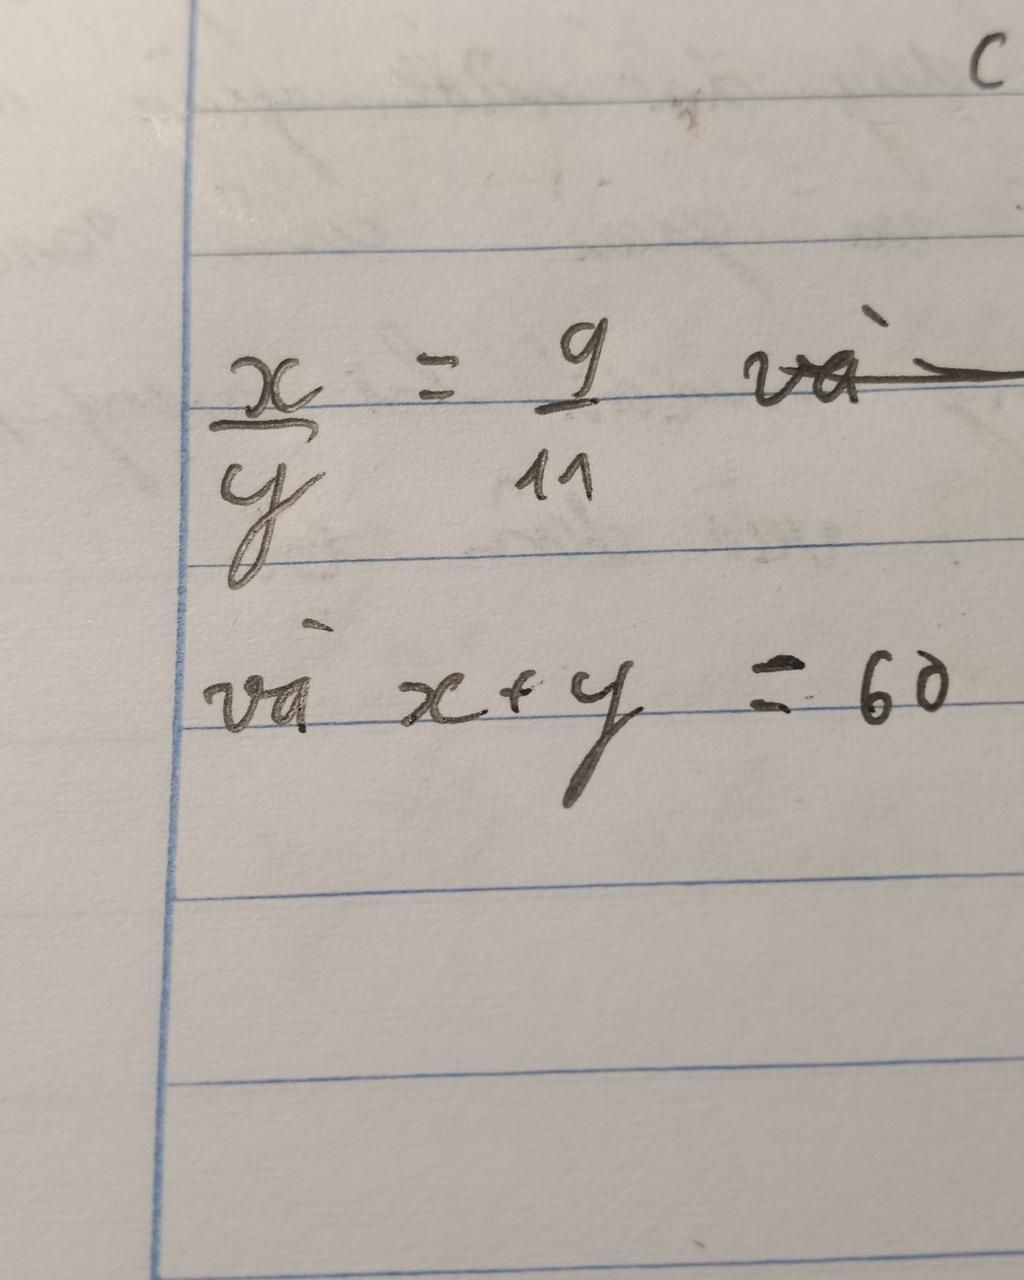 C
x/y = 9/11
và x + y = 60